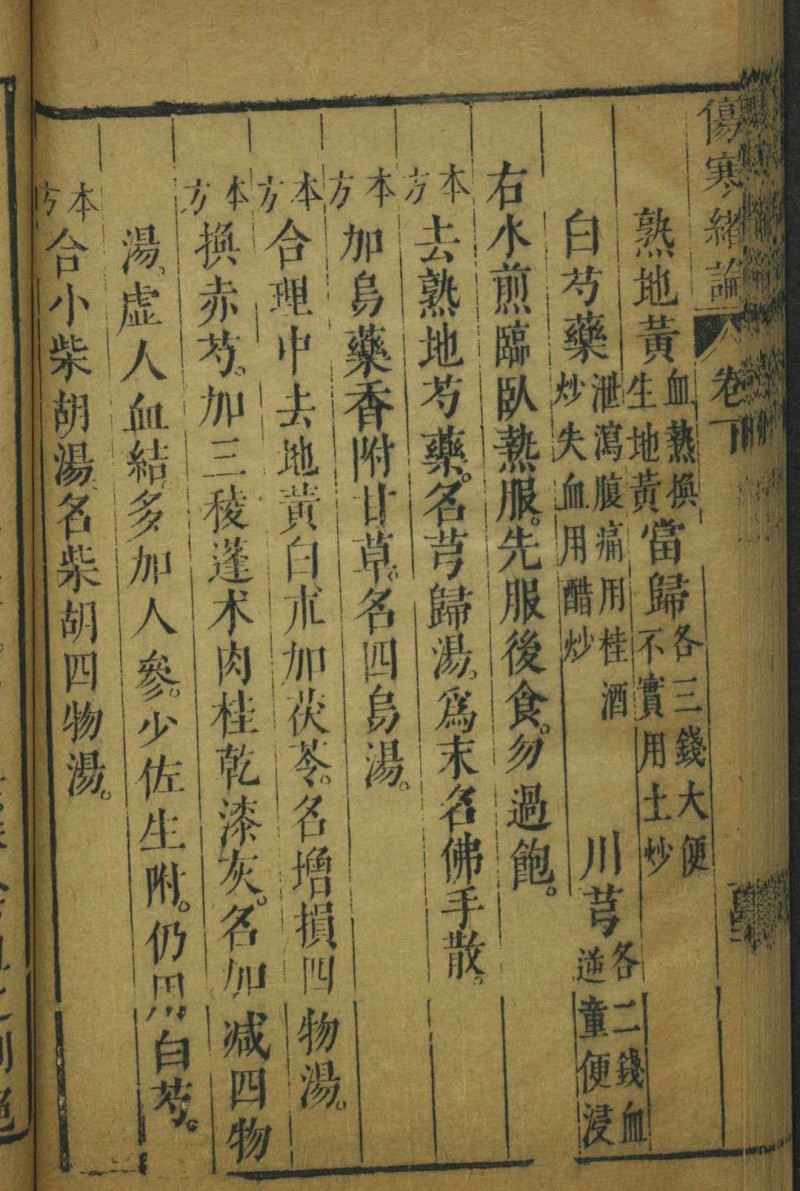 傷寒緒論 卷下
熟地黃血熱換生地黃當歸各三錢大便不實用土炒
白芍藥泄瀉腹痛用桂酒炒失血用醋炒川芎各二錢血逆童便浸
右水煎臨臥熱服。先服後食。勿過飽。
本方去熟地芍藥。名芎歸湯。爲末名佛手散。
本方加烏藥香附甘草。名四烏湯。
本方合理中去地黃白朮加茯苓。名增損四物湯。
本方換赤芍。加三稜蓬朮肉桂乾漆灰。名加減四物
湯、虛人血結多加人參。少佐生附。仍用白芍。
本方合小柴胡湯名柴胡四物湯。